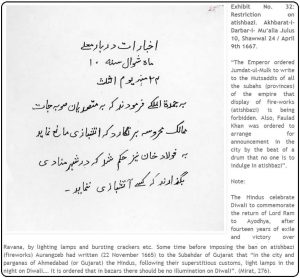 اخبارات دربار معلی
ماه شوال سنه ۱۰
۲۴
فرمودند که به متصدیان صوبه جات
ممالک محروسه برنگارد که آتشبازی مانع نماید
به فولاد خان نیز حکم شد که در شهر منادی
که کسے آتشبازی ننماید
Exhibit No. 32:
Restriction on
atishbazi. Akhbarat-i-
Darbar-i- Mu'alla Julus
10, Shawwal 24 / April
9th 1667.
"The Emperor ordered
Jumdat-ul-Mulk to write
to the Mutsaddis of all
the subahs (provinces)
of the empire that
display of fire-works
(atishbazi) is being
forbidden. Also, Faulad
Khan was ordered to
arrange for
announcement in all
the city by the beat of a
drum that no one is to
indulge in atishbazi".
Note:
The Hindus celebrate
Diwali to commemorate
the return of Lord Ram
to Ayodhya, after
fourteen years of exile
and victory over
Ravana, by lighting lamps and bursting crackers etc. Some time before imposing the ban on atishbazi
(fireworks) Aurangzeb had written (22 November 1665) to the Subahdar of Gujarat that "In the city and
parganas of Ahmedabad (or Gujarat) the Hindus, following their superstitious customs, light lamps in the
night on Diwali... It is ordered that in bazars there should be no illumination on Diwali". (Mirat, 276).